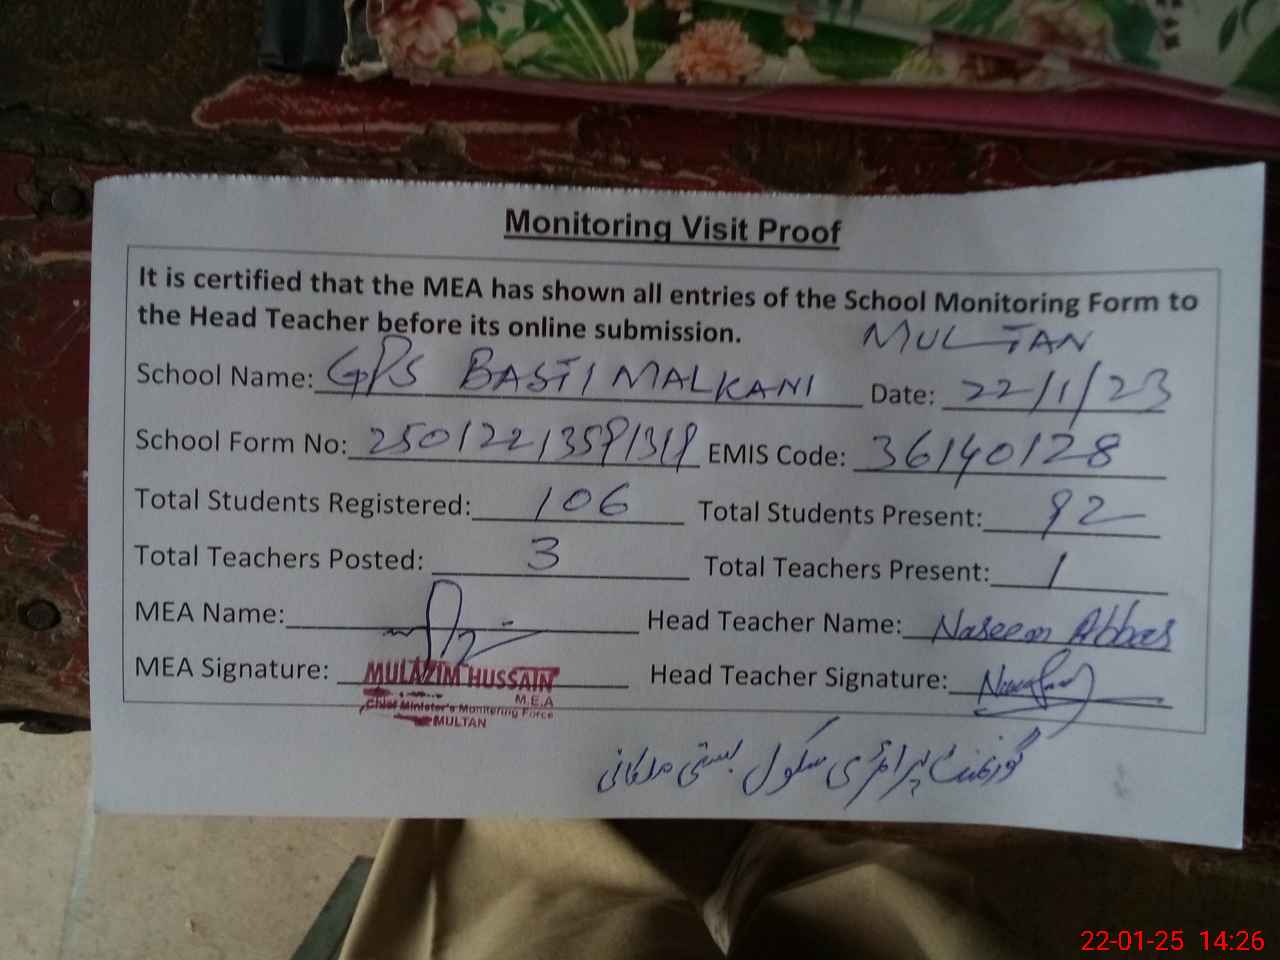 Monitoring Visit Proof
It is certified that the MEA has shown all entries of the School Monitoring Form to
the Head Teacher before its online submission.
MULTAN
School Name: GPS BASTI MALKANI Date: 22/1/23
School Form No: EMIS Code: 36140128
Total Students Registered: 106 Total Students Present: 92
Total Teachers Posted: 3 Total Teachers Present: 1
MEA Name: Head Teacher Name: Naseem Abbas
MEA Signature: Head Teacher Signature:
MULAZIM HUSSAIN
M.E.A
Chief Minister's Monitoring Force
MULTAN
گورنمنٹ پرائمری سکول بستی ملکانی
22-01-25 14:26